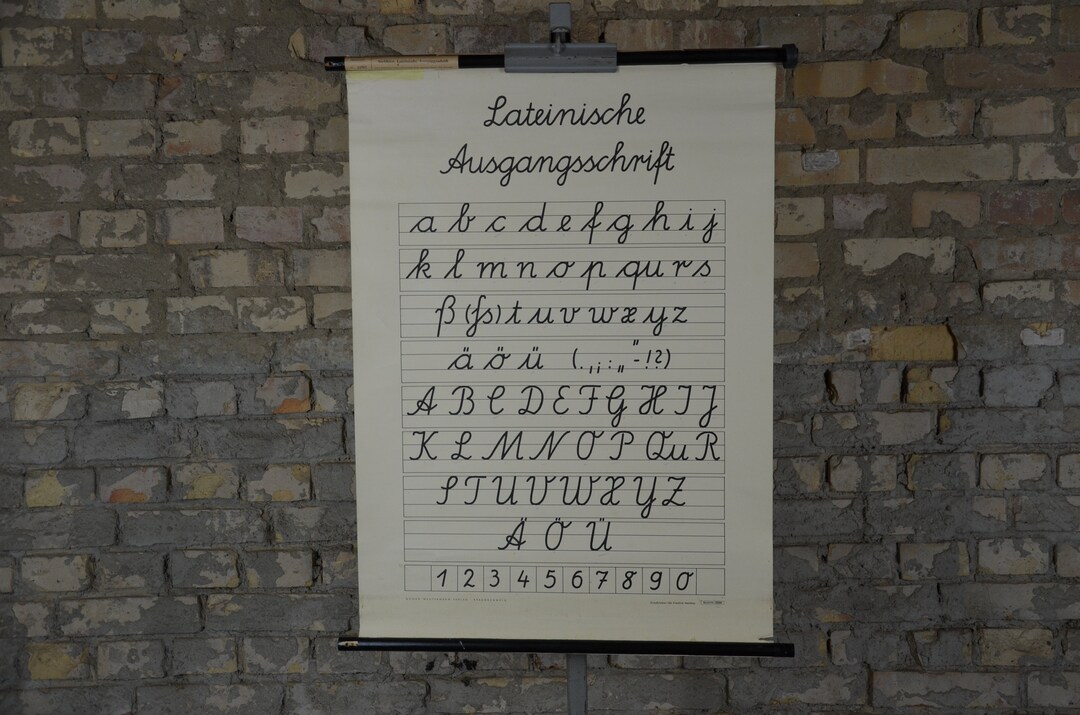 Lateinische
Ausgangsschrift
a b c d e f g h i j
k l m n o p qu r s
ß (ſs) t u v w x y z
ä ö ü (. , ; : „ " - ! ?)
A B C D E F G H I J
K L M N O P Qu R
S T U V W X Y Z
Ä Ö Ü
1 2 3 4 5 6 7 8 9 0